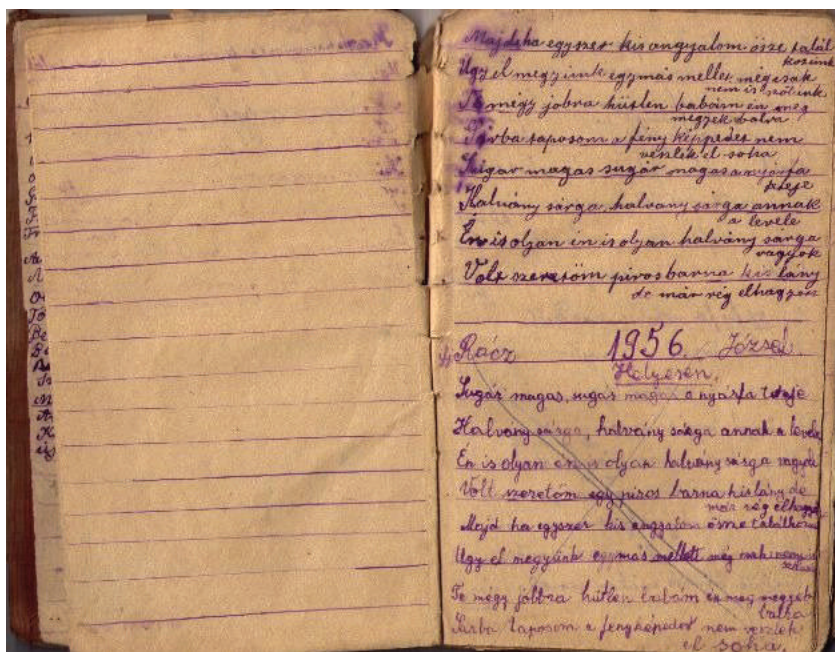 Majd ha egyszer kis angyalom össze talál
kozunk
Ugy el megyünk egymás mellet mégcsak
nem is szólunk
Te mégy jobra hütlen babám én meg
megyek balra
Sárba taposom a fény képpedet nem
veszlek el soha
Sugár magas sugár magas a nyárfa
teteje
Halvány sárga, halvány sárga annak
a levele
Én is olyan én is olyan halvány sárga
vagyok
Volt szeretőm piros barna kis lány
de már rég elhagyott
Rácz 1956. József
Helyesen.
Sugár magas, sugár magas a nyárfa teteje
Halvány sárga, halvány sárga annak a levele
Én is olyan én is olyan halvány sárga vagyok
Volt szeretőm egy piros barna kislány de
már rég elhagyott
Majd ha egyszer kis angyalom össze találkozunk
Ugy el megyünk egymás mellett még csak nem is
Te mégy jobbra hütlen babám én meg megyek
balra
Sárba taposom a fényképedet nem veszlek
el soha.